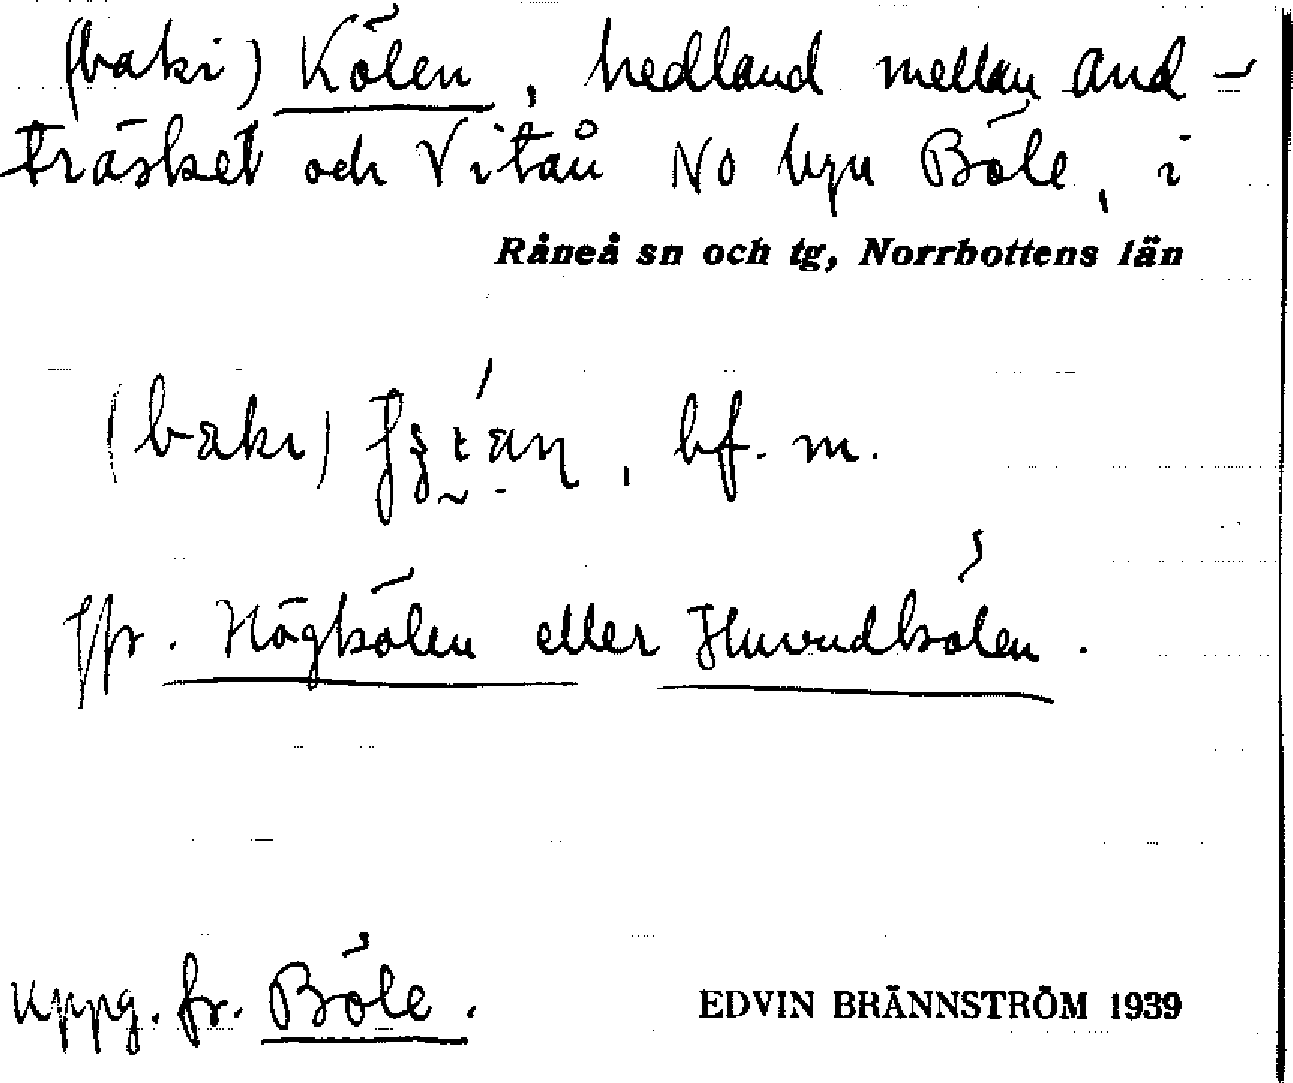 (baki) Kölen, hedland mellan And-
träsket och Vitån NO byn Böle, i
Råneå sn och tg, Norrbottens län
(baki) , bf. m.
Jfr. Högkölen eller Huvudkölen.
uppg. fr. Böle.
EDVIN BRÄNNSTRÖM 1939